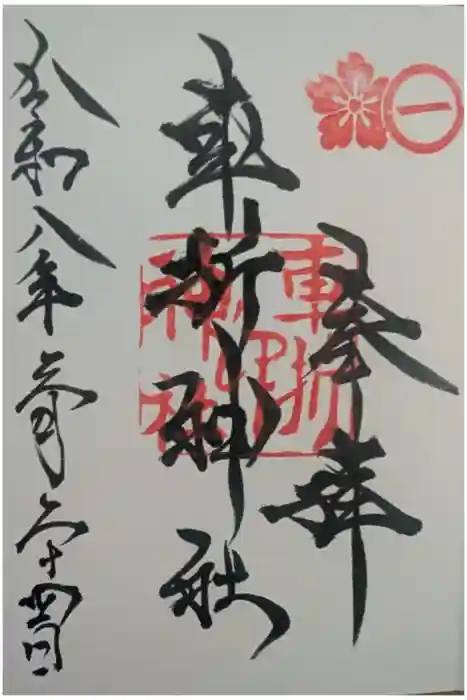 一
奉拝
車折神社
令和八年二月二十四日